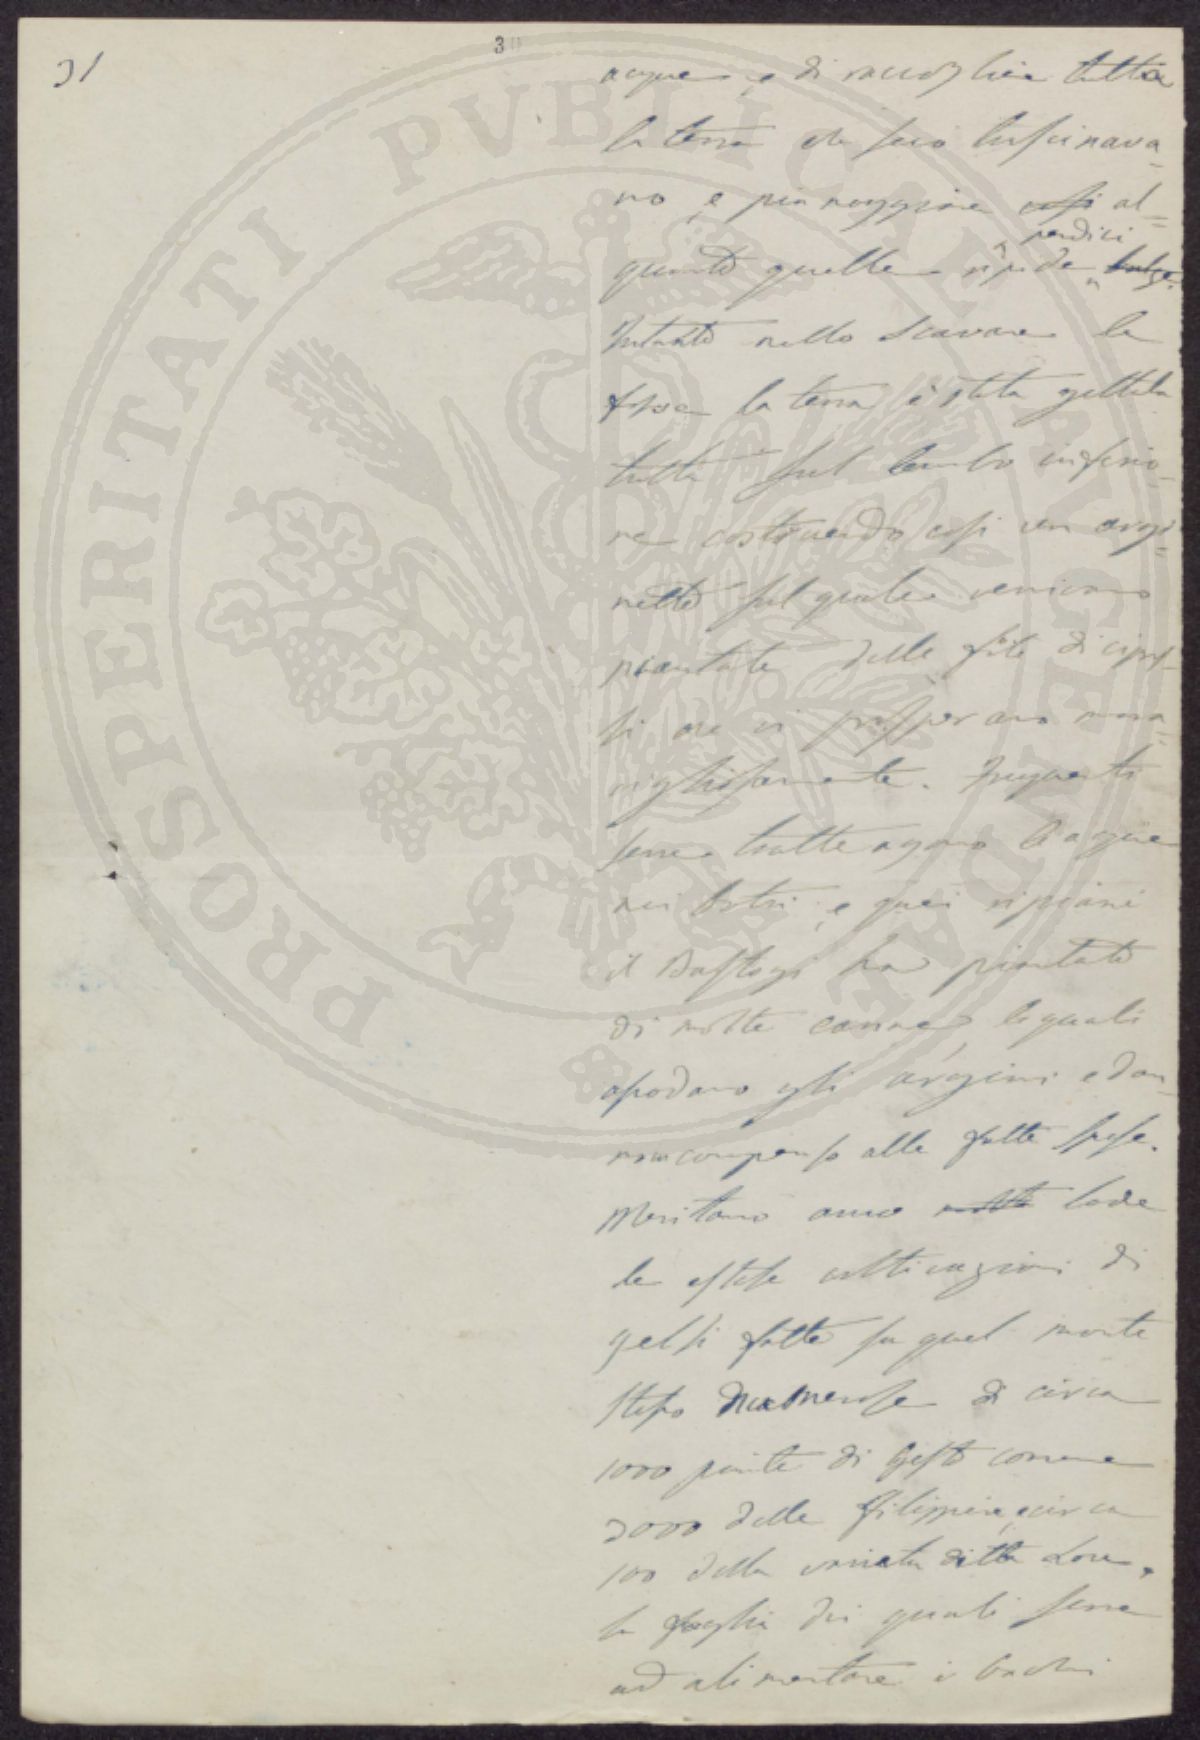 31
30
acque, e di raccogliere tutta
la terra che seco lascinava-
no, e pianeggiare così al-
quanto quelle ripide pendici balze.
Intanto nello scavare le
fosse la terra è stata gettata
tutta sul lembo inferio-
re costruendo così un argi-
netto sul quale venivano
piantate delle file di cipres-
si che vi prosperano mara-
vigliosamente. Frequenti
serre trattengono le acque
nei botri, e quei ripiani
il Bastogi ha piantato
di molte canne, le quali
assodano gli argini e dan-
no compenso alle fatte spese.
Meritano anco molta lode
le estese coltivazioni di
gelsi fatte su quel monte
stesso numerose di circa
1000 piante di Gelso comune
3000 delle filippine, e circa
100 della varietà detta Lou,
la foglia dei quali serve
ad alimentare i bachi
PROSPERITATI PVBLICAE AVGENDAE